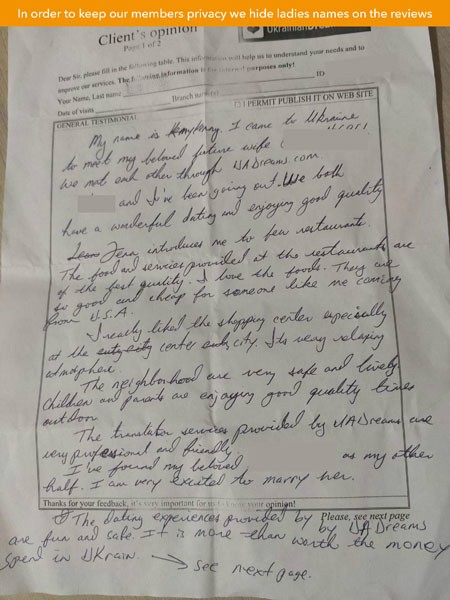 In order to keep our members privacy we hide ladies names on the reviews
Client's opinion
Page 1 of 2
Dear Sir, please fill in the following table. This will help us to understand your needs and to
improve our services. The information is for purposes only!
Your Name, Last name ID
Date of visits Branch
GENERAL TESTIMONIAL I PERMIT PUBLISH IT ON WEB SITE
My name is I came to Ukraine
to meet my beloved future wife
We met each other through UADreams.com.
and I've been going out. We both
have a wonderful dating and enjoying good quality
introduces me to few restaurants.
The food and services provided at the restaurants are
of the best quality. I love the foods. They are
so good and cheap for someone like me coming
from U.S.A.
I really liked the shopping center especially
at the center city. Its very relaxing
atmosphere.
The neighborhood are very safe and lively.
Children and parents are enjoying good quality times
outdoor
The translator services provided by UADreams are
very professional and friendly.
I've found my beloved as my other
half. I am very excited to marry her.
Thanks for your feedback, it's very important for us to know your opinion!
Please, see next page
The dating experiences provided by by UADreams
are fun and safe. It is more than worth the money
spend in UKrain. → See next page.